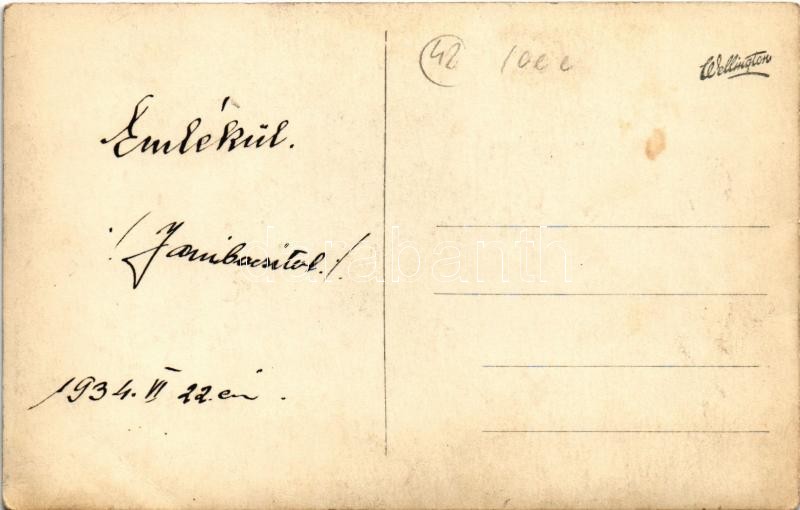 Emlékül.
/Janibacsitol./
1934. VI 22.én.
42
Wellington
darabanth